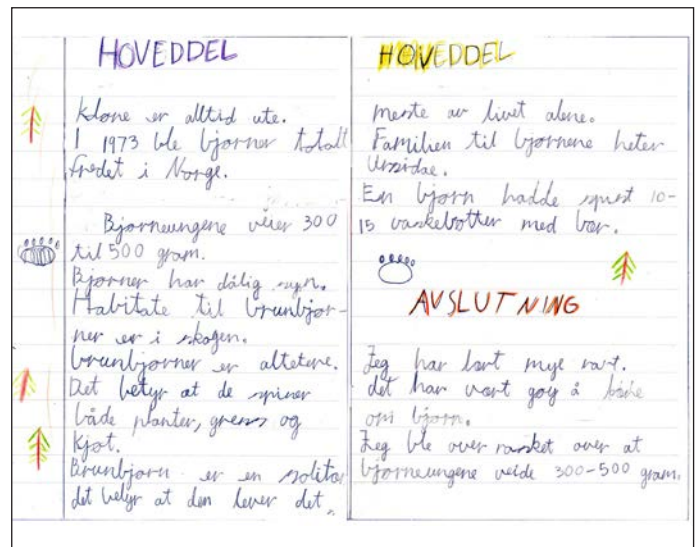 HOVEDDEL
Klone er alltid ute.
I 1973 ble bjørner totalt
fredet i Norge.
Bjørneungene veier 300
til 500 gram.
Bjørner har dålig syn.
Habitate til brunbjør-
ner er i skogen.
brunbjørner er altetere.
Det betyr at de spiser
både planter, gress og
kjøt.
Brunbjørn er en solitær
det betyr at den lever det
HOVEDDEL
meste av livet alene.
Familien til bjørnene heter
Urssidae.
En bjørn hadde spist 10-
15 vaskebøtter med bær.
AVSLUTNING
Jeg har lært mye rart.
det har vært gøy å
om bjørn.
Jeg ble over rasket over at
bjørneungene veide 300-500 gram.